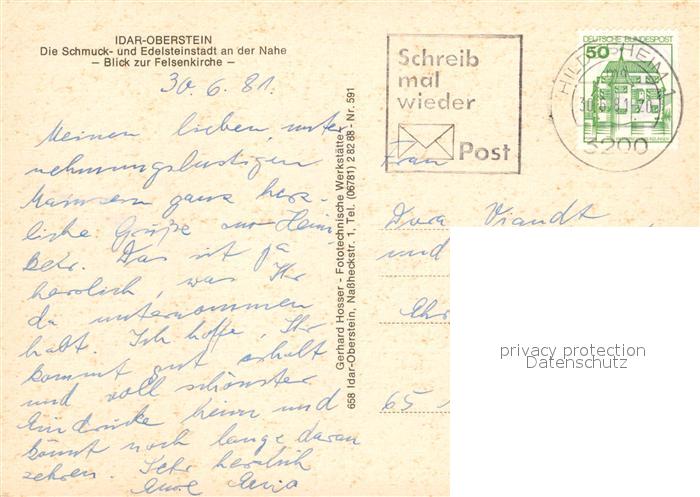 IDAR-OBERSTEIN
Die Schmuck- und Edelsteinstadt an der Nahe
– Blick zur Felsenkirche –
30.6.81.
Meinen lieben, unter
nehmungslustigen
Mainzern ganz herz-
liche Grüße zur Heim
kehr. Das ist ja
herrlich, was Ihr
da unternommen
habt. Ich hoffe, Ihr
kommt gut erholt
und voll schönster
Eindrücke heim und
könnt noch lange daran
zehren. Sehr herzlich
Eure
Gerhard Hosser - Fototechnische Werkstätten
658 Idar-Oberstein, Naßheckstr. 1, Tel. (06781) 2 82 88 - Nr. 591
Schreib
mal
wieder
Post
DEUTSCHE BUNDESPOST
50
HILDESHEIM 1
30.6.81-20
3200
Frau
Dora Viandt
und
65
privacy protection
Datenschutz